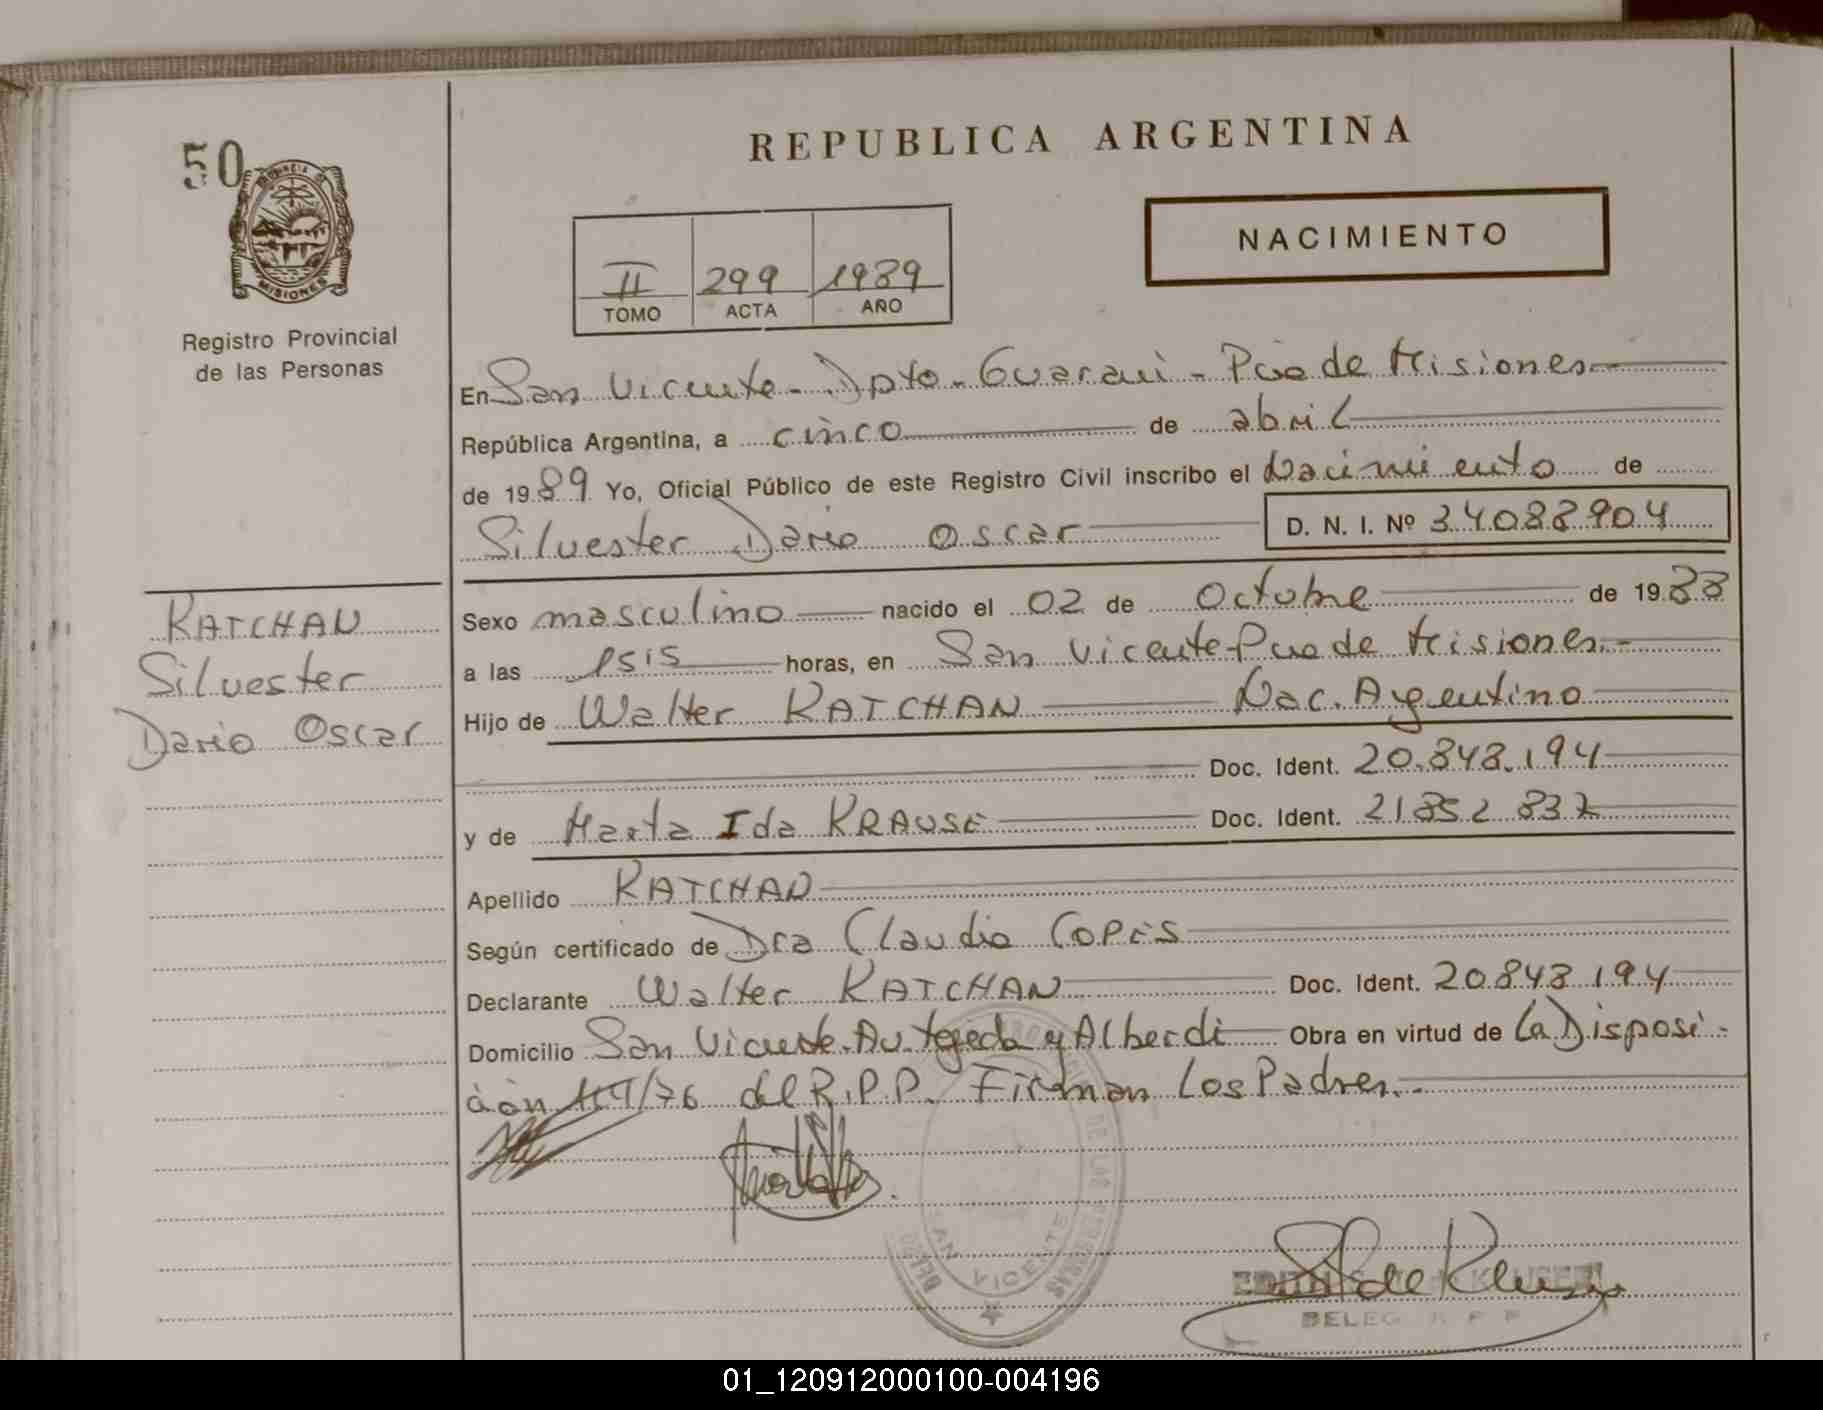 50
PROVINCIA DE
MISIONES
Registro Provincial
de las Personas
REPUBLICA ARGENTINA
NACIMIENTO
II 299 1989
TOMO ACTA AÑO
En San Vicente - Dpto - Guarani - Pcia de Misiones
República Argentina, a cinco de abril
de 1989 Yo, Oficial Público de este Registro Civil inscribo el Nacimiento de
Silvester Dario Oscar D. N. I. Nº 34088904
Sexo masculino nacido el 02 de Octubre de 1988
a las 1515 horas, en San Vicente Pcia de Misiones.-
Hijo de Walter KATCHAN Nac. Argentino
Doc. Ident. 20.848.194
y de Marta Ida KRAUSE Doc. Ident. 21852837
Apellido KATCHAN
Según certificado de Dra Claudia Copes
Declarante Walter KATCHAN Doc. Ident. 20848194
Domicilio San Vicente - Av. Tejeda y Alberdi Obra en virtud de La Disposi-
ción /76 del R.P.P. Firman Los Padres.-
KATCHAN
Silvester
Dario Oscar
DE LAS PERSONAS
SAN VICENTE
EDITH KLUSENER
DELEG R P P
01_120912000100-004196